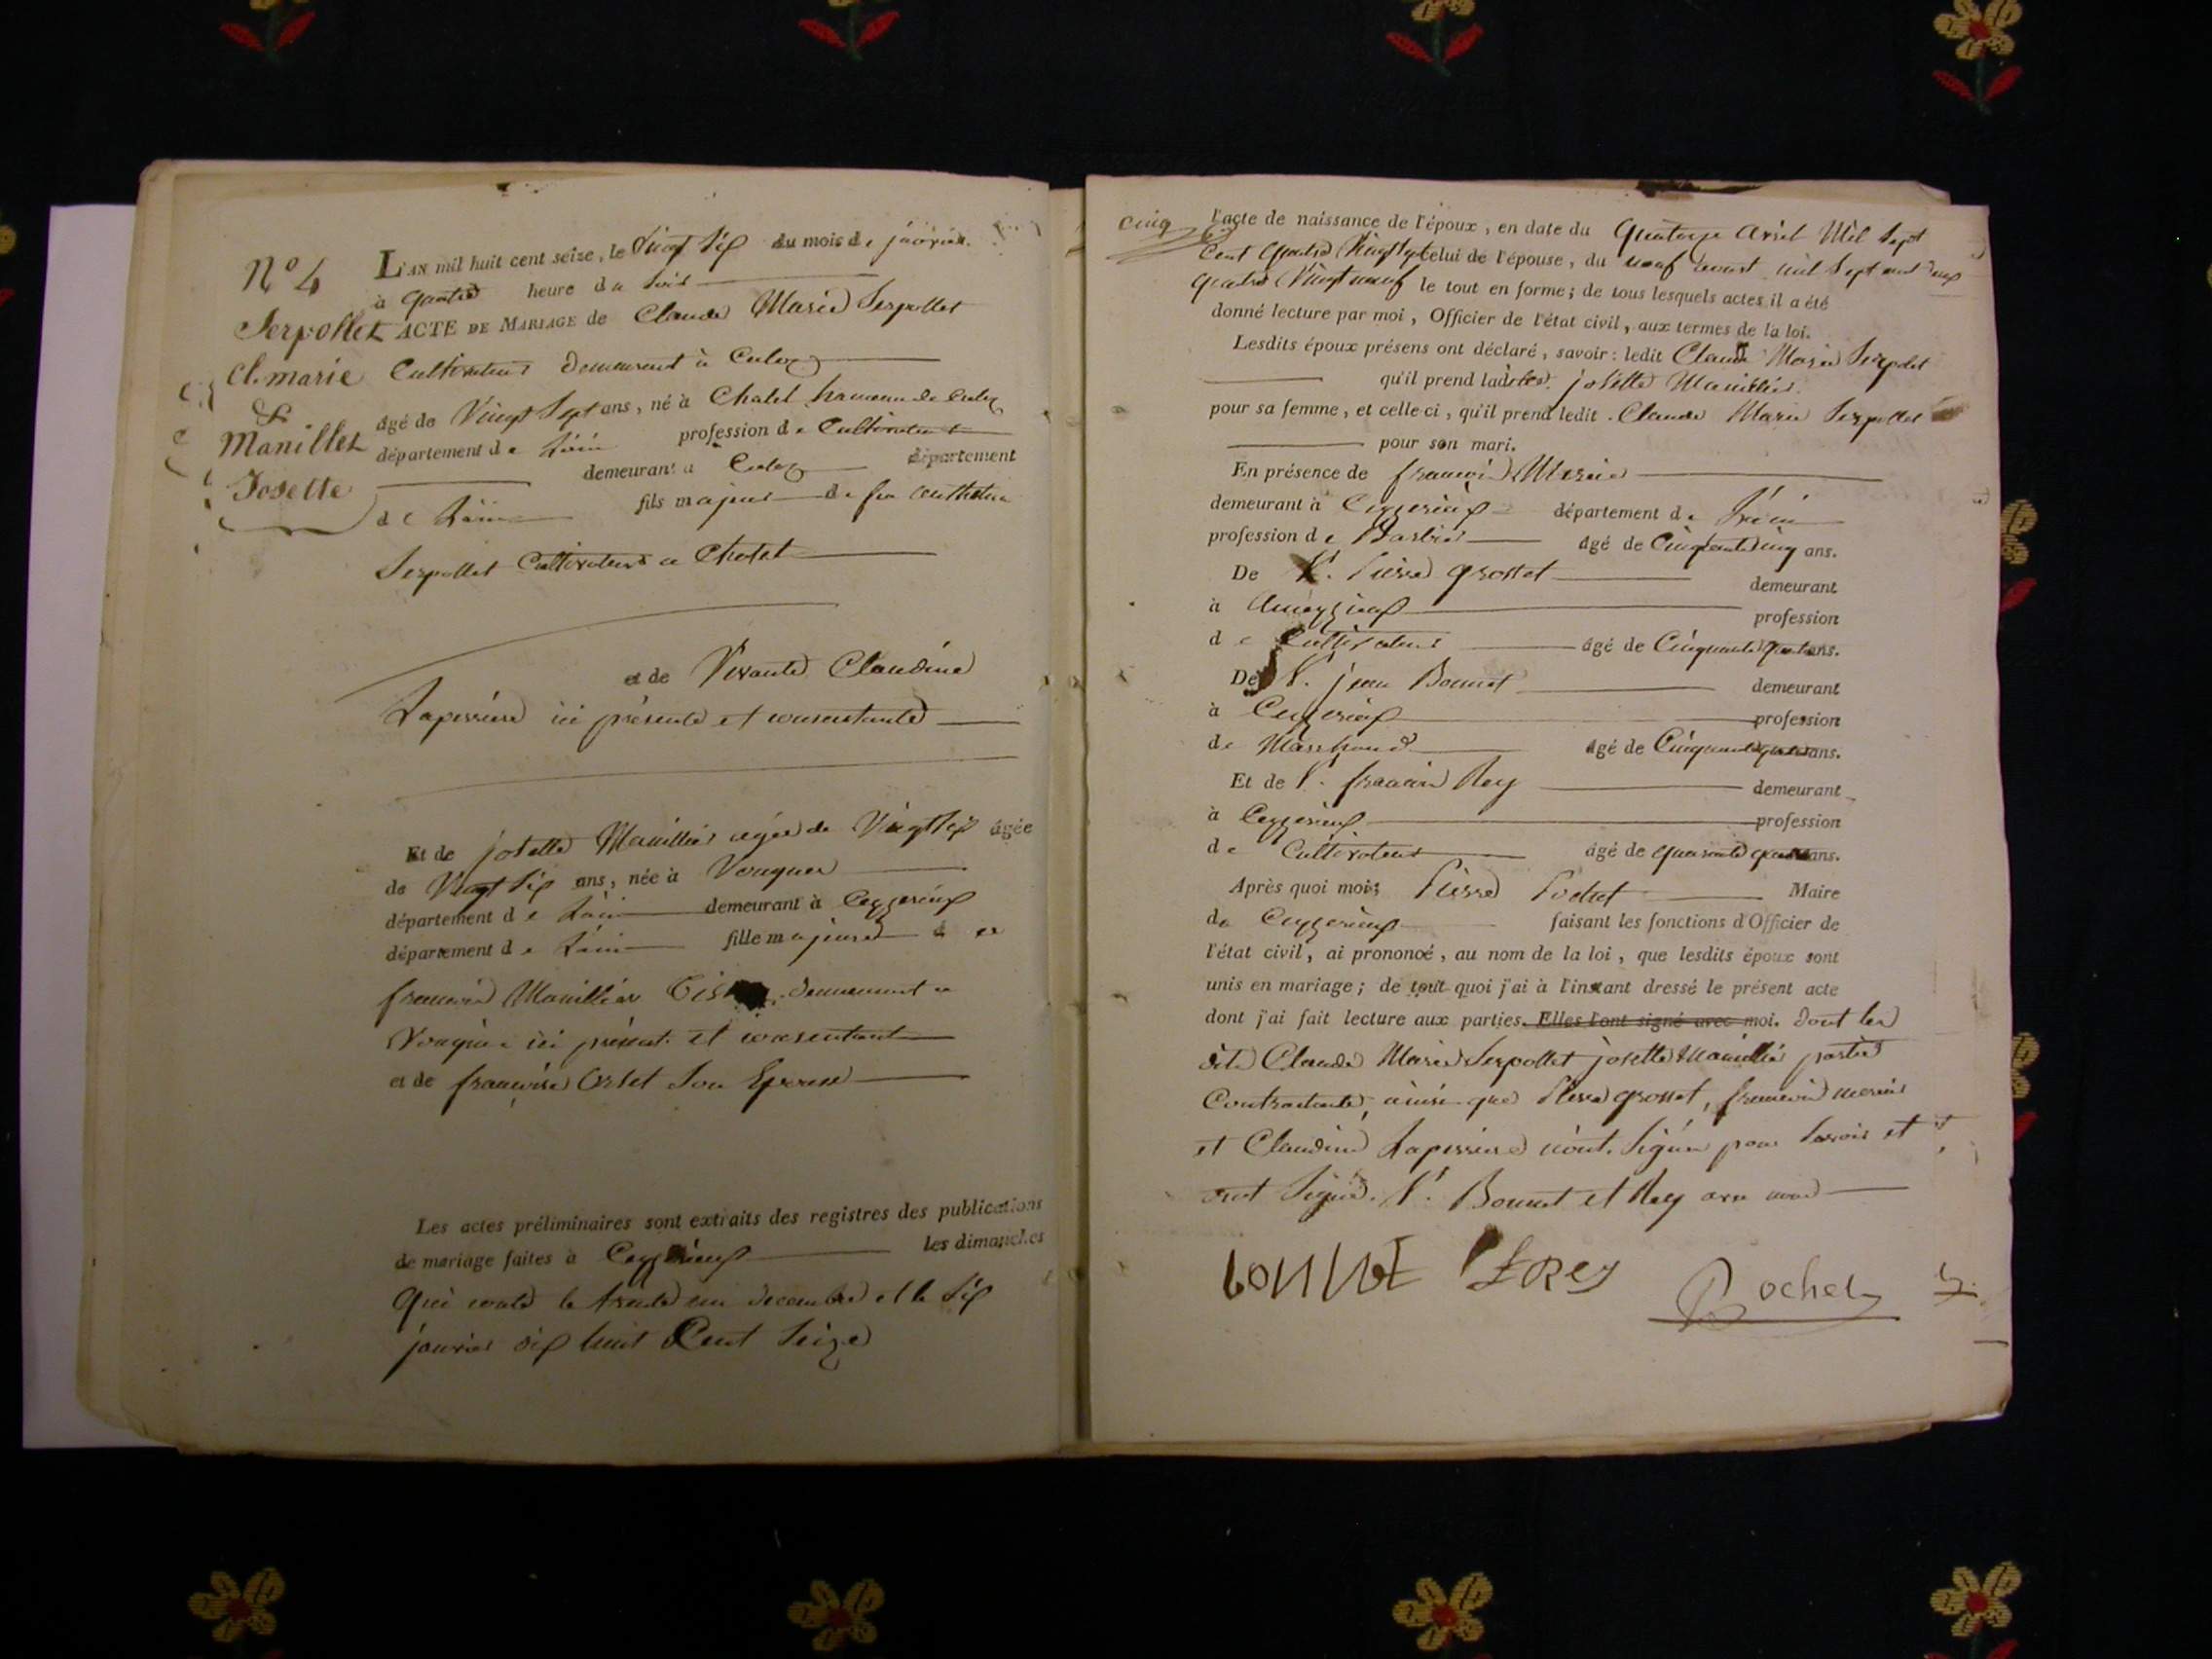 N° 4
Serpollet
Cl. marie
&
Manillet
Josette
L'AN mil huit cent seize, le Vingt Six du mois de janvier.
à quatre heure du Soir
ACTE DE MARIAGE de Claude Marie Serpollet
Cultivateur demeurant à Culoz
âgé de Vingt Sept ans, né à Chatel hameau de Culoz
département de L'ain profession de Cultivateur
demeurant à Culoz département
de L'ain fils majeur de feu
Serpollet Cultivateur a Chatel
et de Vivante Claudine
Laperrière ici présente et consentante
Et de josette Manillier agée de Vingt Six âgée
de Vingt Six ans, née à Vongnes
département de L'ain demeurant à Ceyzerieux
département de L'ain fille majeure de
françois Manillier demeurant a
Vongnes ici présent et consentant
et de françoise Orset Son Epouse
Les actes préliminaires sont extraits des registres des publications
de mariage faites à Ceyzerieux les dimanches
trente un decembre et le Six
janvier dix huit Cent Seize
cinq
l'acte de naissance de l'époux, en date du Quatorze avril Mil Sept
Cent Quatre Vingt celui de l'épouse, du neuf aoust mil Sept cent
quatre Vingt neuf le tout en forme; de tous lesquels actes il a été
donné lecture par moi, Officier de l'état civil, aux termes de la loi.
Lesdits époux présens ont déclaré, savoir: ledit Claude Marie Serpollet
qu'il prend ladite josette Manillier
pour sa femme, et celle-ci, qu'il prend ledit Claude Marie Serpollet
pour son mari.
En présence de françois Mercier
demeurant à Ceyzerieux département de L'ain
profession de Barbier âgé de Cinquante Cinq ans.
De S.r Pierre grosset demeurant
à Ameyzieux profession
de Cultivateur âgé de Cinquante quatre ans.
De S.r jean Bonnet demeurant
à Ceyzerieux profession
de Marchand âgé de Cinquante quatre ans.
Et de S.r françois Rey demeurant
à Ceyzerieux profession
de Cultivateur âgé de quarante quatre ans.
Après quoi moi; Pierre Pochet Maire
de Ceyzerieux faisant les fonctions d'Officier de
l'état civil, ai prononcé, au nom de la loi, que lesdits époux sont
unis en mariage; de tout quoi j'ai à l'instant dressé le présent acte
dont j'ai fait lecture aux parties. Elles l'ont signé avec moi. dont les
dits Claude Marie Serpollet josette Manillier parties
Contractante, ainsi que Pierre grosset, françois mercier
et Claudine Laperrière n'ont Signé pour Savoir et
ont Signé. S.r Bonnet et Rey avec moi
bonnet f Rey Pochet